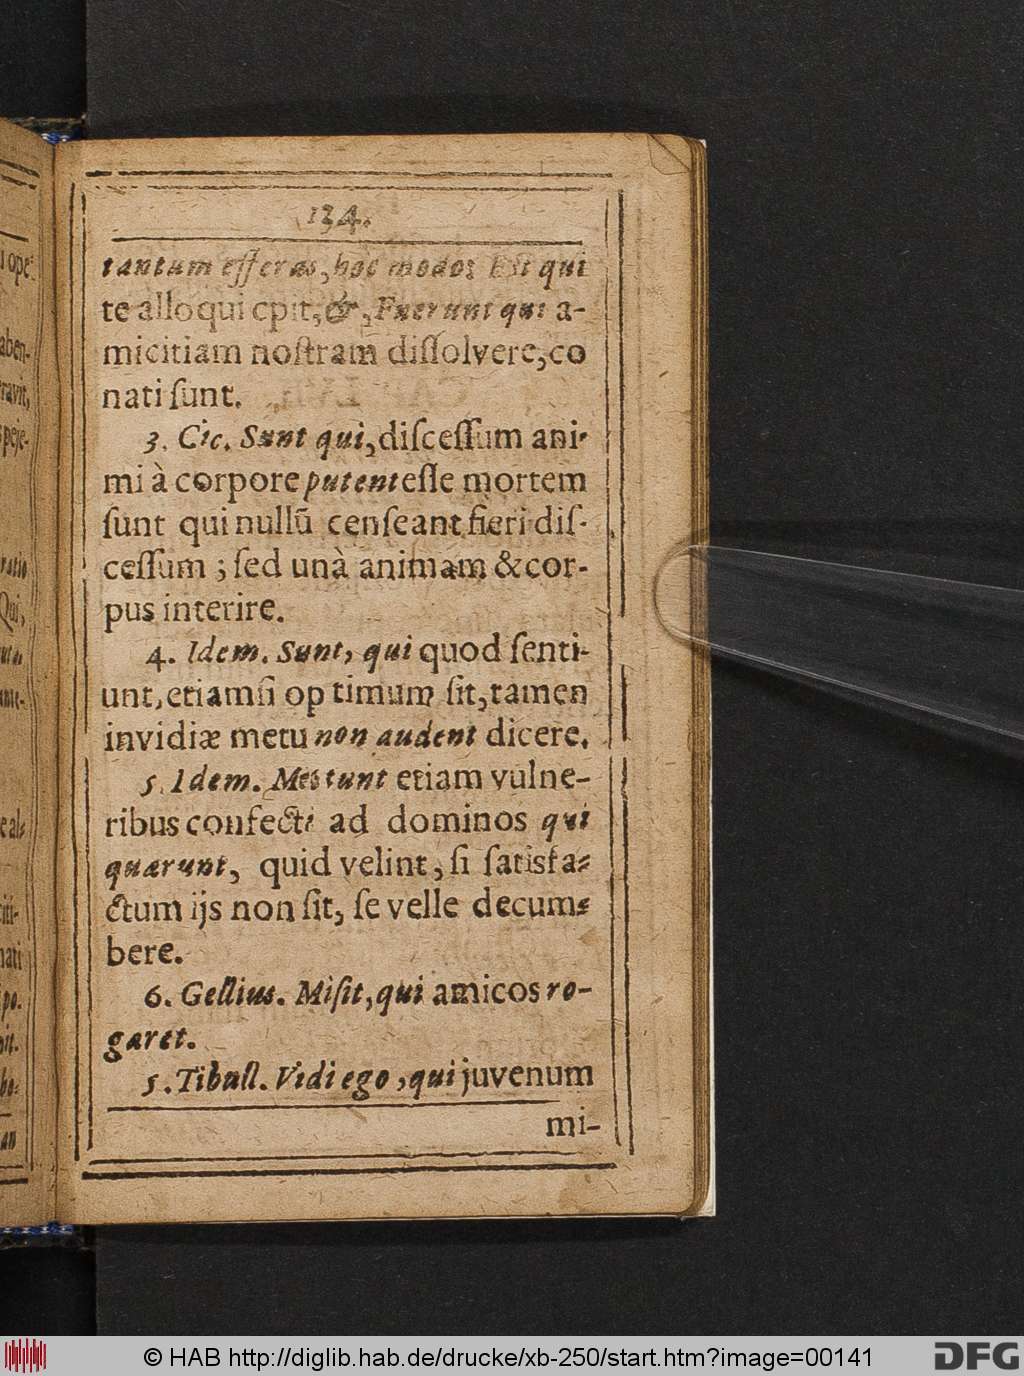 134.
tantum efferas, hoc modo: Est qui
te alloqui cpit, &, Fuerunt qui a-
micitiam noſtram diſſolvere, co
nati ſunt.
3. Cic. Sunt qui, diſceſſum ani-
mi à corpore putent eſſe mortem
ſunt qui nullū cenſeant fieri diſ-
ceſſum ; ſed unà animam & cor-
pus interire.
4. Idem. Sunt, qui quod ſenti-
unt, etiamſi op timum ſit, tamen
invidiæ metu non audent dicere.
5. Idem. Mettunt etiam vulne-
ribus confecti ad dominos qui
quærunt, quid velint, ſi ſatisfa-
ctum ijs non ſit, ſe velle decum-
bere.
6. Gellius. Miſit, qui amicos ro-
garet.
5. Tibull. Vidi ego, qui juvenum
mi-
© HAB http://diglib.hab.de/drucke/xb-250/start.htm?image=00141
DFG